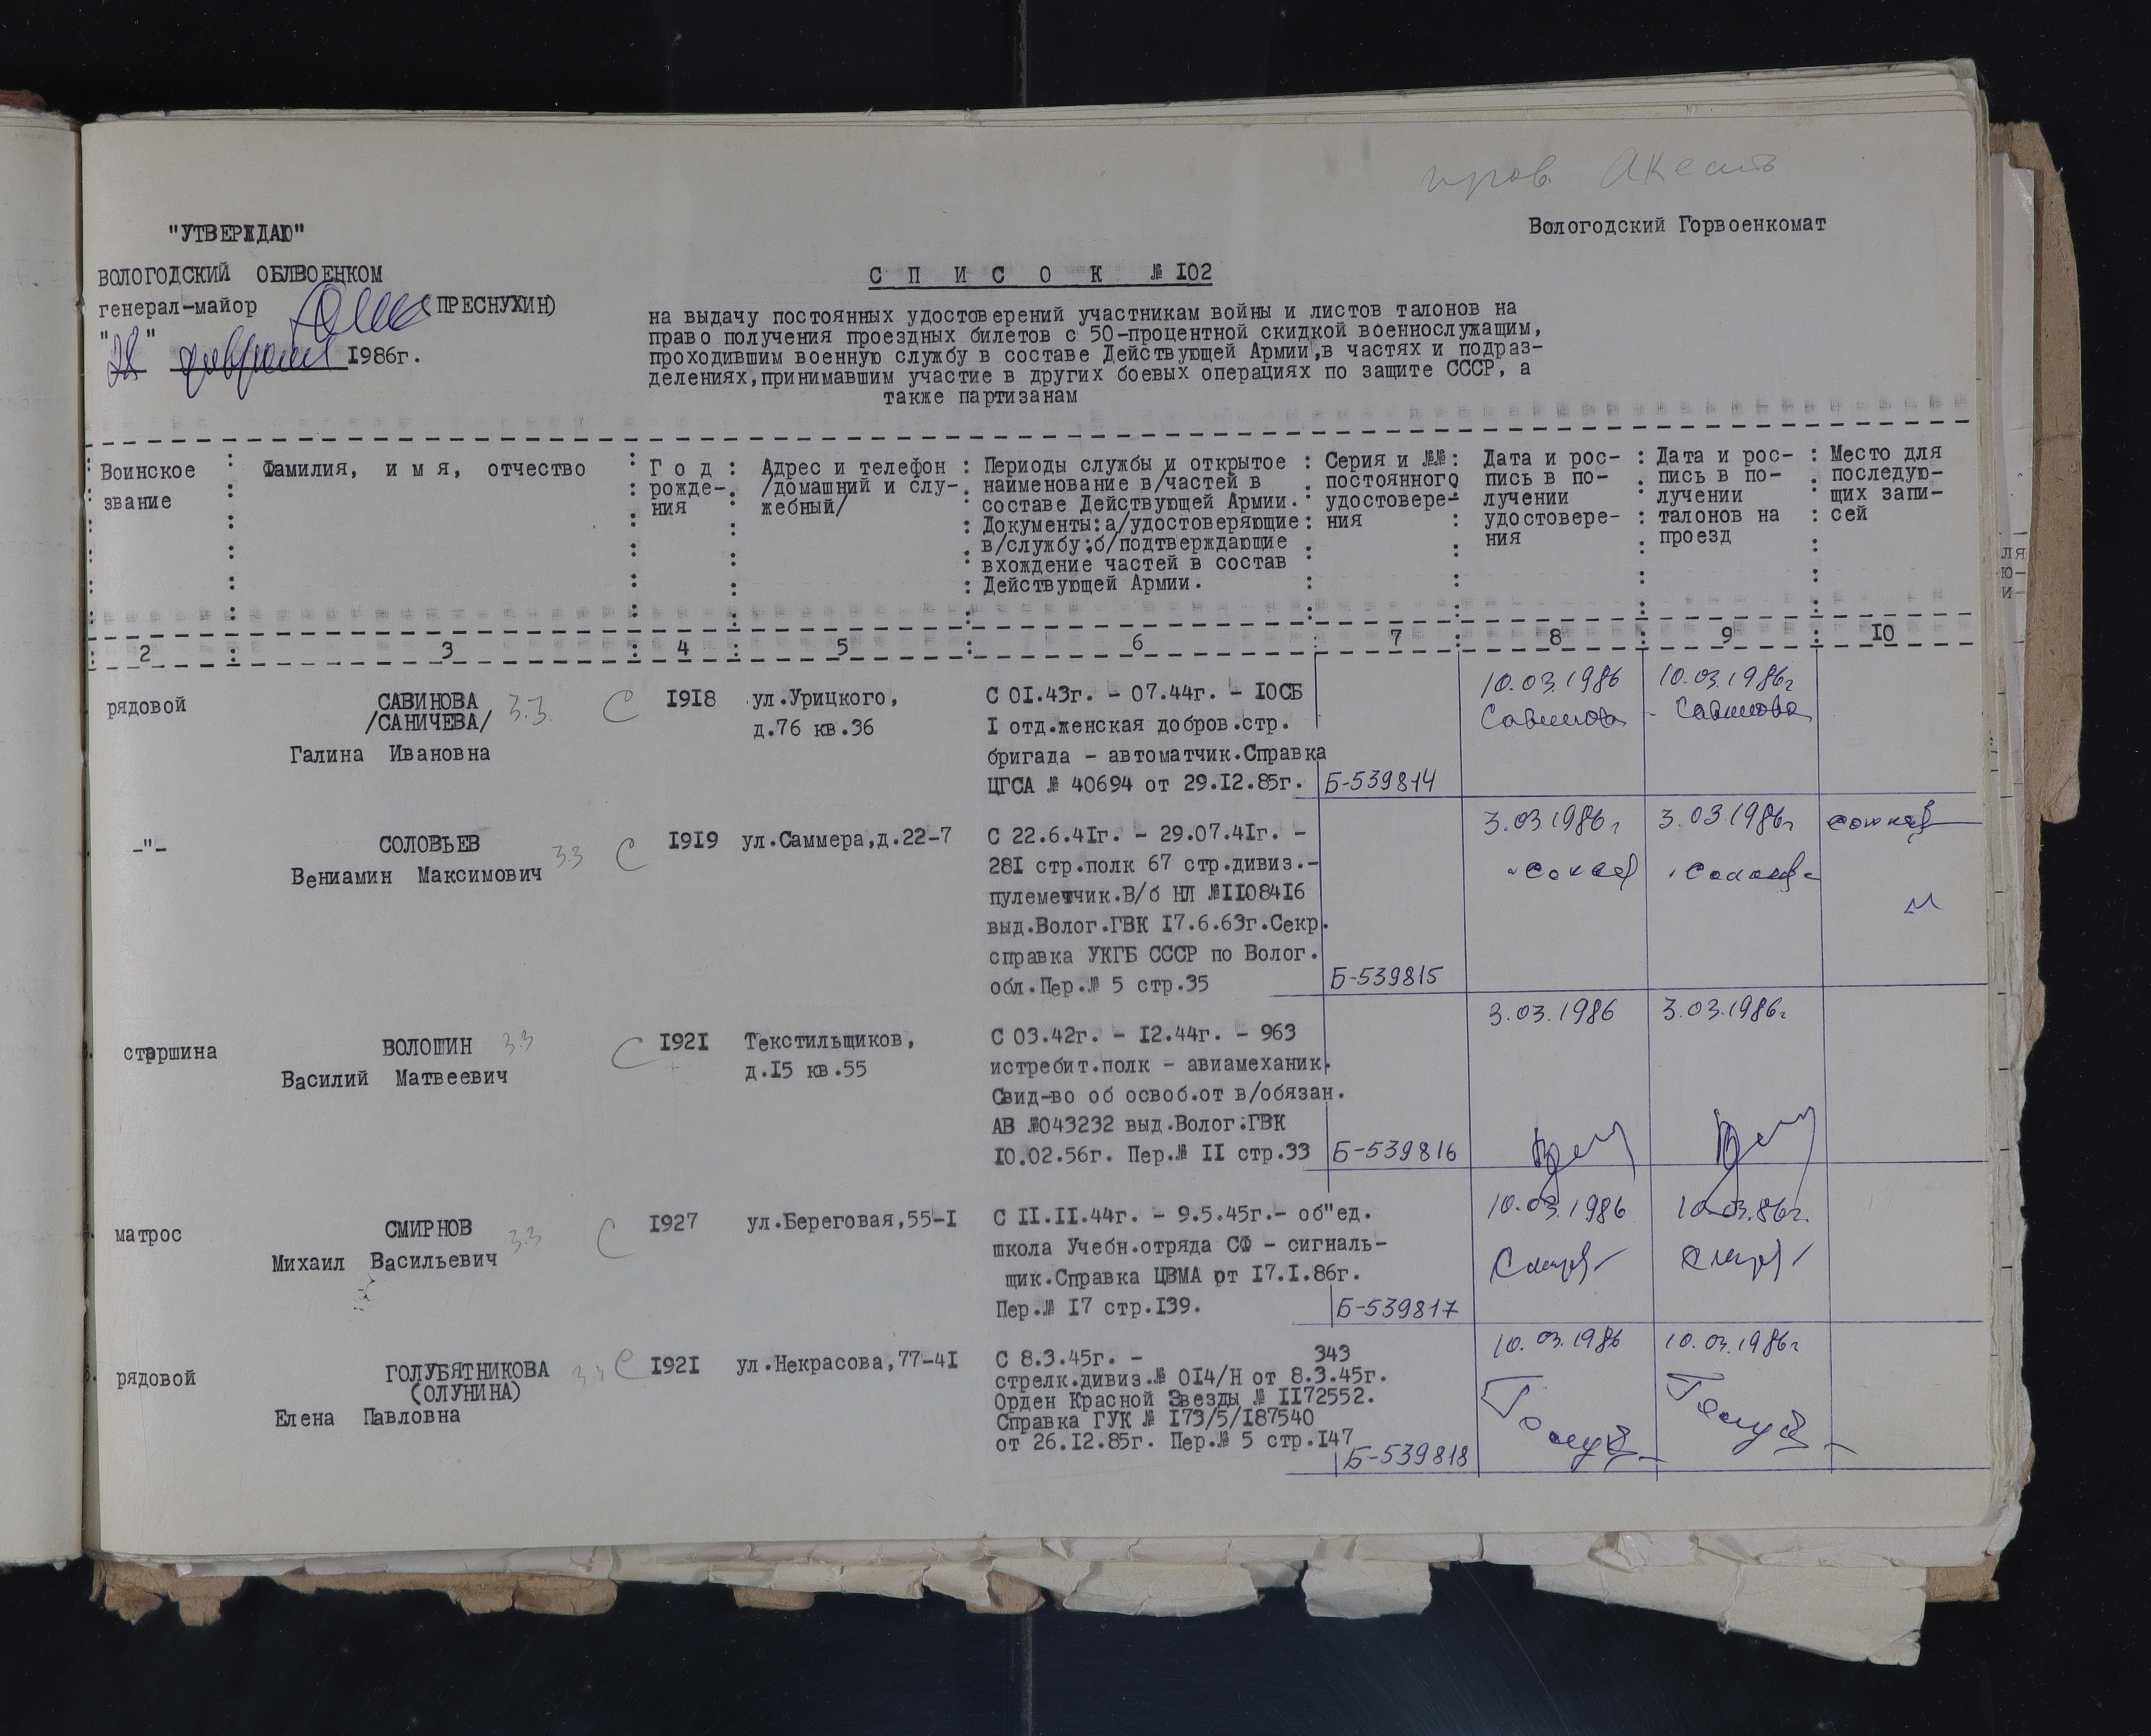 пров.
Вологодский Горвоенкомат
"УТВЕРЖДАЮ"
ВОЛОГОДСКИЙ ОБЛВОЕНКОМ
генерал-майор (ПРЕСНУХИН)
"28" февраля 1986г.
С П И С О К № I02
на выдачу постоянных удостоверений участникам войны и листов талонов на
право получения проездных билетов с 50-процентной скидкой военнослужащим,
проходившим военную службу в составе Действующей Армии,в частях и подраз-
делениях,принимавшим участие в других боевых операциях по защите СССР, а
также партизанам
Воинское
звание
Фамилия, и м я, отчество
Г о д
рожде-
ния
Адрес и телефон
/домашний и слу-
жебный/
Периоды службы и открытое
наименование в/частей в
составе Действующей Армии.
Документы:а/удостоверяющие
в/службу;б/подтверждающие
вхождение частей в состав
Действующей Армии.
Серия и №№
постоянного
удостовере-
ния
Дата и рос-
пись в по-
лучении
удостовере-
ния
Дата и рос-
пись в по-
лучении
талонов на
проезд
Место для
последую-
щих запи-
сей
2 3 4 5 6 7 8 9 I0
рядовой
САВИНОВА 3.3. С
/САНИЧЕВА/
Галина Ивановна
I9I8
ул.Урицкого,
д.76 кв.36
С 0I.43г. - 07.44г. - I0СБ
I отд.женская добров.стр.
бригада - автоматчик.Справка
ЦГСА № 40694 от 29.I2.85г.
Б-539814
10.03.1986
Савинова
10.03.1986г
Савинова
-"-
СОЛОВЬЕВ
Вениамин Максимович 3.3 С
I9I9
ул.Саммера,д.22-7
С 22.6.4Iг. - 29.07.4Iг. -
28I стр.полк 67 стр.дивиз.-
пулеметчик.В/б НЛ №II084I6
выд.Волог.ГВК I7.6.63г.Секр.
справка УКГБ СССР по Волог.
обл.Пер.№ 5 стр.35
Б-539815
3.03 1986г
3.03.1986г
старшина
ВОЛОШИН 3.3 С
Василий Матвеевич
I92I
Текстильщиков,
д.I5 кв.55
С 03.42г. - I2.44г. - 963
истребит.полк - авиамеханик.
Свид-во об освоб.от в/обязан.
АВ №043232 выд.Волог.ГВК
I0.02.56г. Пер.№ II стр.33
Б-539816
3.03.1986
3.03.1986г
матрос
СМИРНОВ 3.3 С
Михаил Васильевич
I927
ул.Береговая,55-I
С II.II.44г. - 9.5.45г.- об"ед.
школа Учебн.отряда СФ - сигналь-
щик.Справка ЦВМА от I7.I.86г.
Пер.№ I7 стр.I39.
Б-539817
10.03.1986
10.03.86г.
рядовой
ГОЛУБЯТНИКОВА 3.3 С
(ОЛУНИНА)
Елена Павловна
I92I
ул.Некрасова,77-4I
С 8.3.45г. - 343
стрелк.дивиз.№ 0I4/Н от 8.3.45г.
Орден Красной Звезды № II72552.
Справка ГУК № I73/5/I87540
от 26.I2.85г. Пер.№ 5 стр.I47
Б-539818
10.03.1986
10.03.1986г
ля
ю-
и-